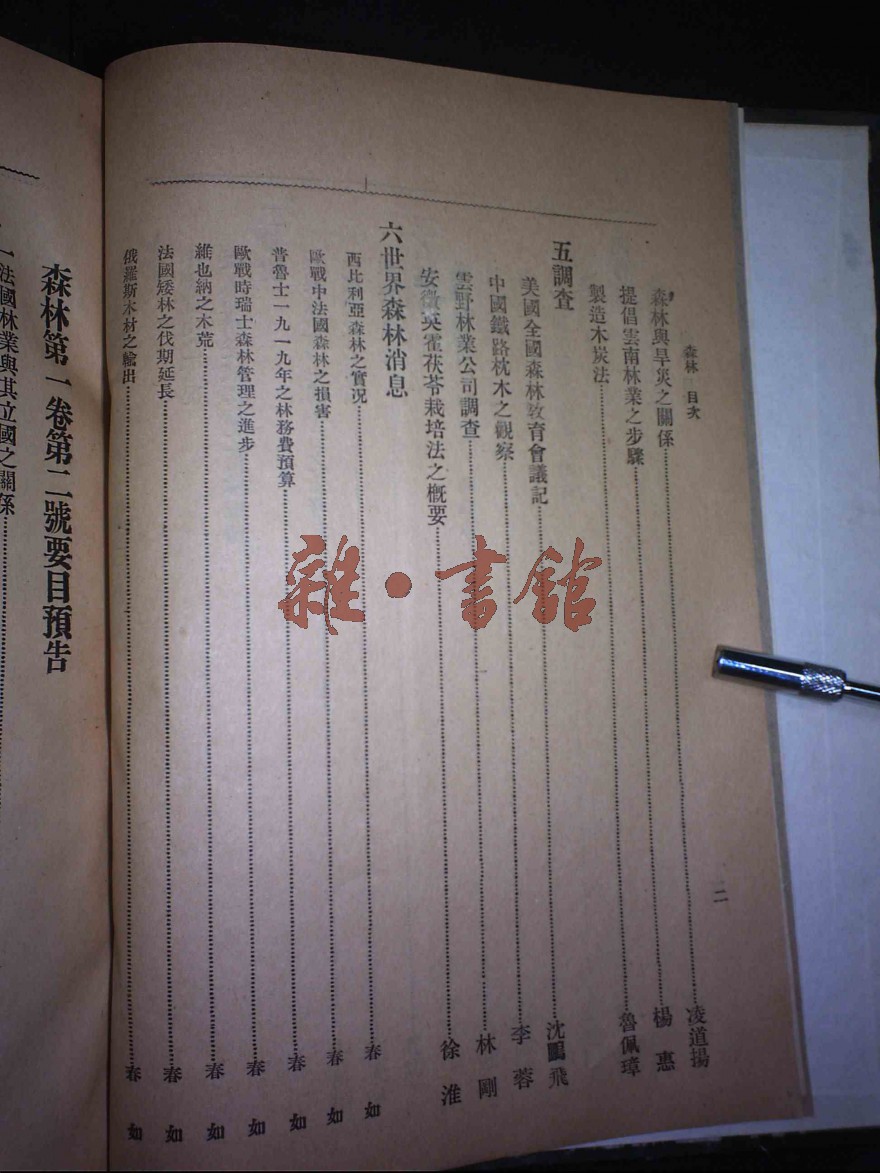 森林 目次
二
森林與旱災之關係……凌道揚
提倡雲南林業之步驟……楊惠
製造木炭法……魯佩璋
五調查
美國全國森林教育會議記……沈鵬飛
中國鐵路枕木之觀察……李蓉
雲野林業公司調查……林剛
安徽英霍茯苓栽培法之概要……徐淮
六世界森林消息
西比利亞森林之實況……春如
歐戰中法國森林之損害……春如
普魯士一九一九年之林務費預算……春如
歐戰時瑞士森林管理之進步……春如
維也納之木荒……春如
法國矮林之伐期延長……春如
俄羅斯木材之輸出……春如
森林第一卷第二號要目預告
一法國林業與其立國之關係……
雜·書館